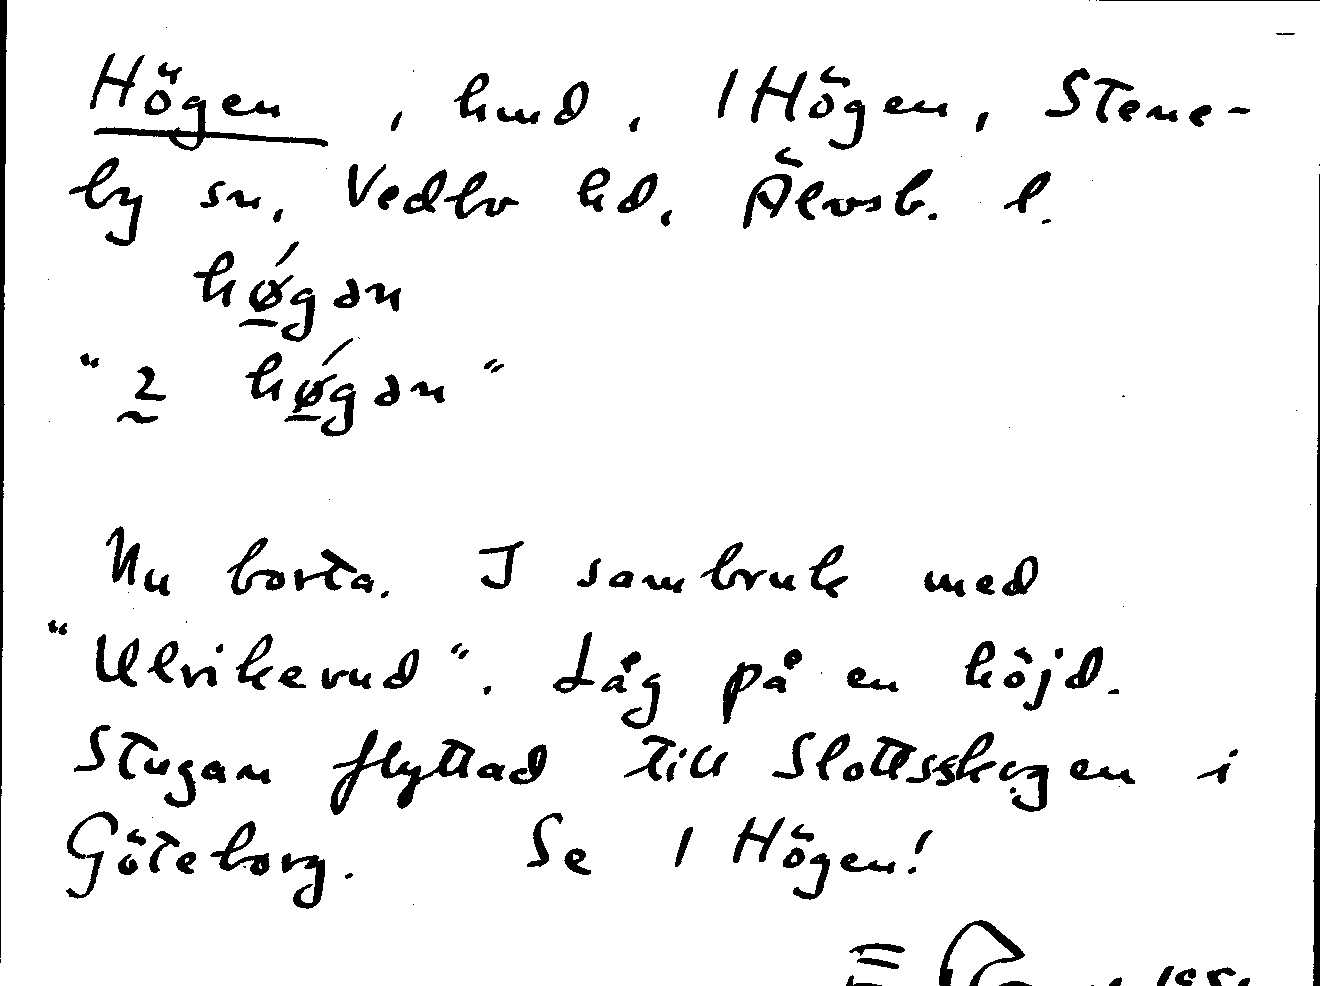 Högen , hmd , 1 Högen, Stene-
by sn, Vedbo hd, Älvsb. l.
hǿ̲gən
" 2 hǿ̲gən "
Nu borta. I sambruk med
"Ulrikerud". Låg på en höjd.
Stugan flyttad till Slottsskogen i
Göteborg. Se 1 Högen!